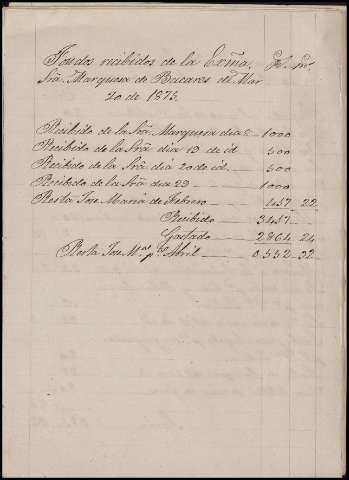 Fondos recibidos de la Exma. 
Sra. Marquesa de Bacares de Mar
zo de 1875.
Recibido de la Sra. Marquesa dia 1000
Recibido de la Sra dia 19 de id 500
Recibido de la Sra dia 20 de id. 500
Recibido de la Sra dia 29 1000
Resta Jose Maria de Febrero 22
Recibido
Gastado 2864 24
Resta Jose Ma. pa. Abril